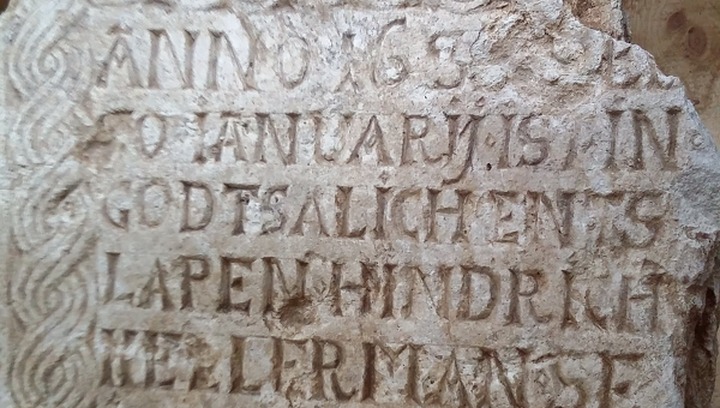 ANNO 163
IANUARIJ·IST IN
GODT SALICH ENTS
LAPEN·HINDRICH
HELLERMAN·SE